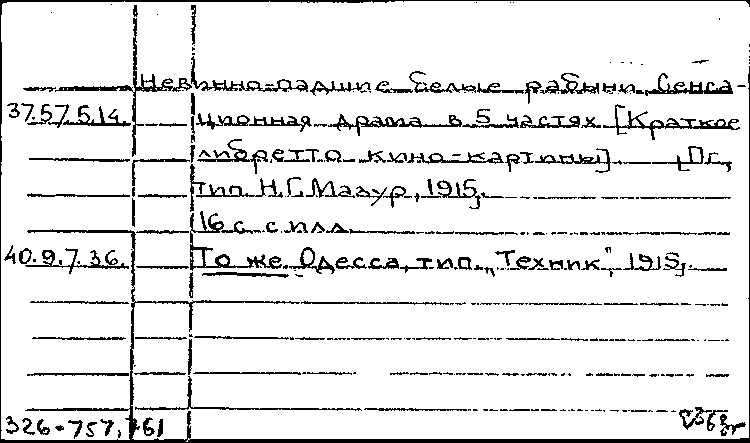 Невинно-падшие белые рабыни. Сенса-
37.57.5.14. ционная драма в 5 частях [Краткое
либретто кино-картины]. [Пг.,
тип. Н.Г. Мазур, 1915].
16 с. с илл.
40.9.7.36. То же. Одесса, тип. „Техник", 1915].
326-757,761